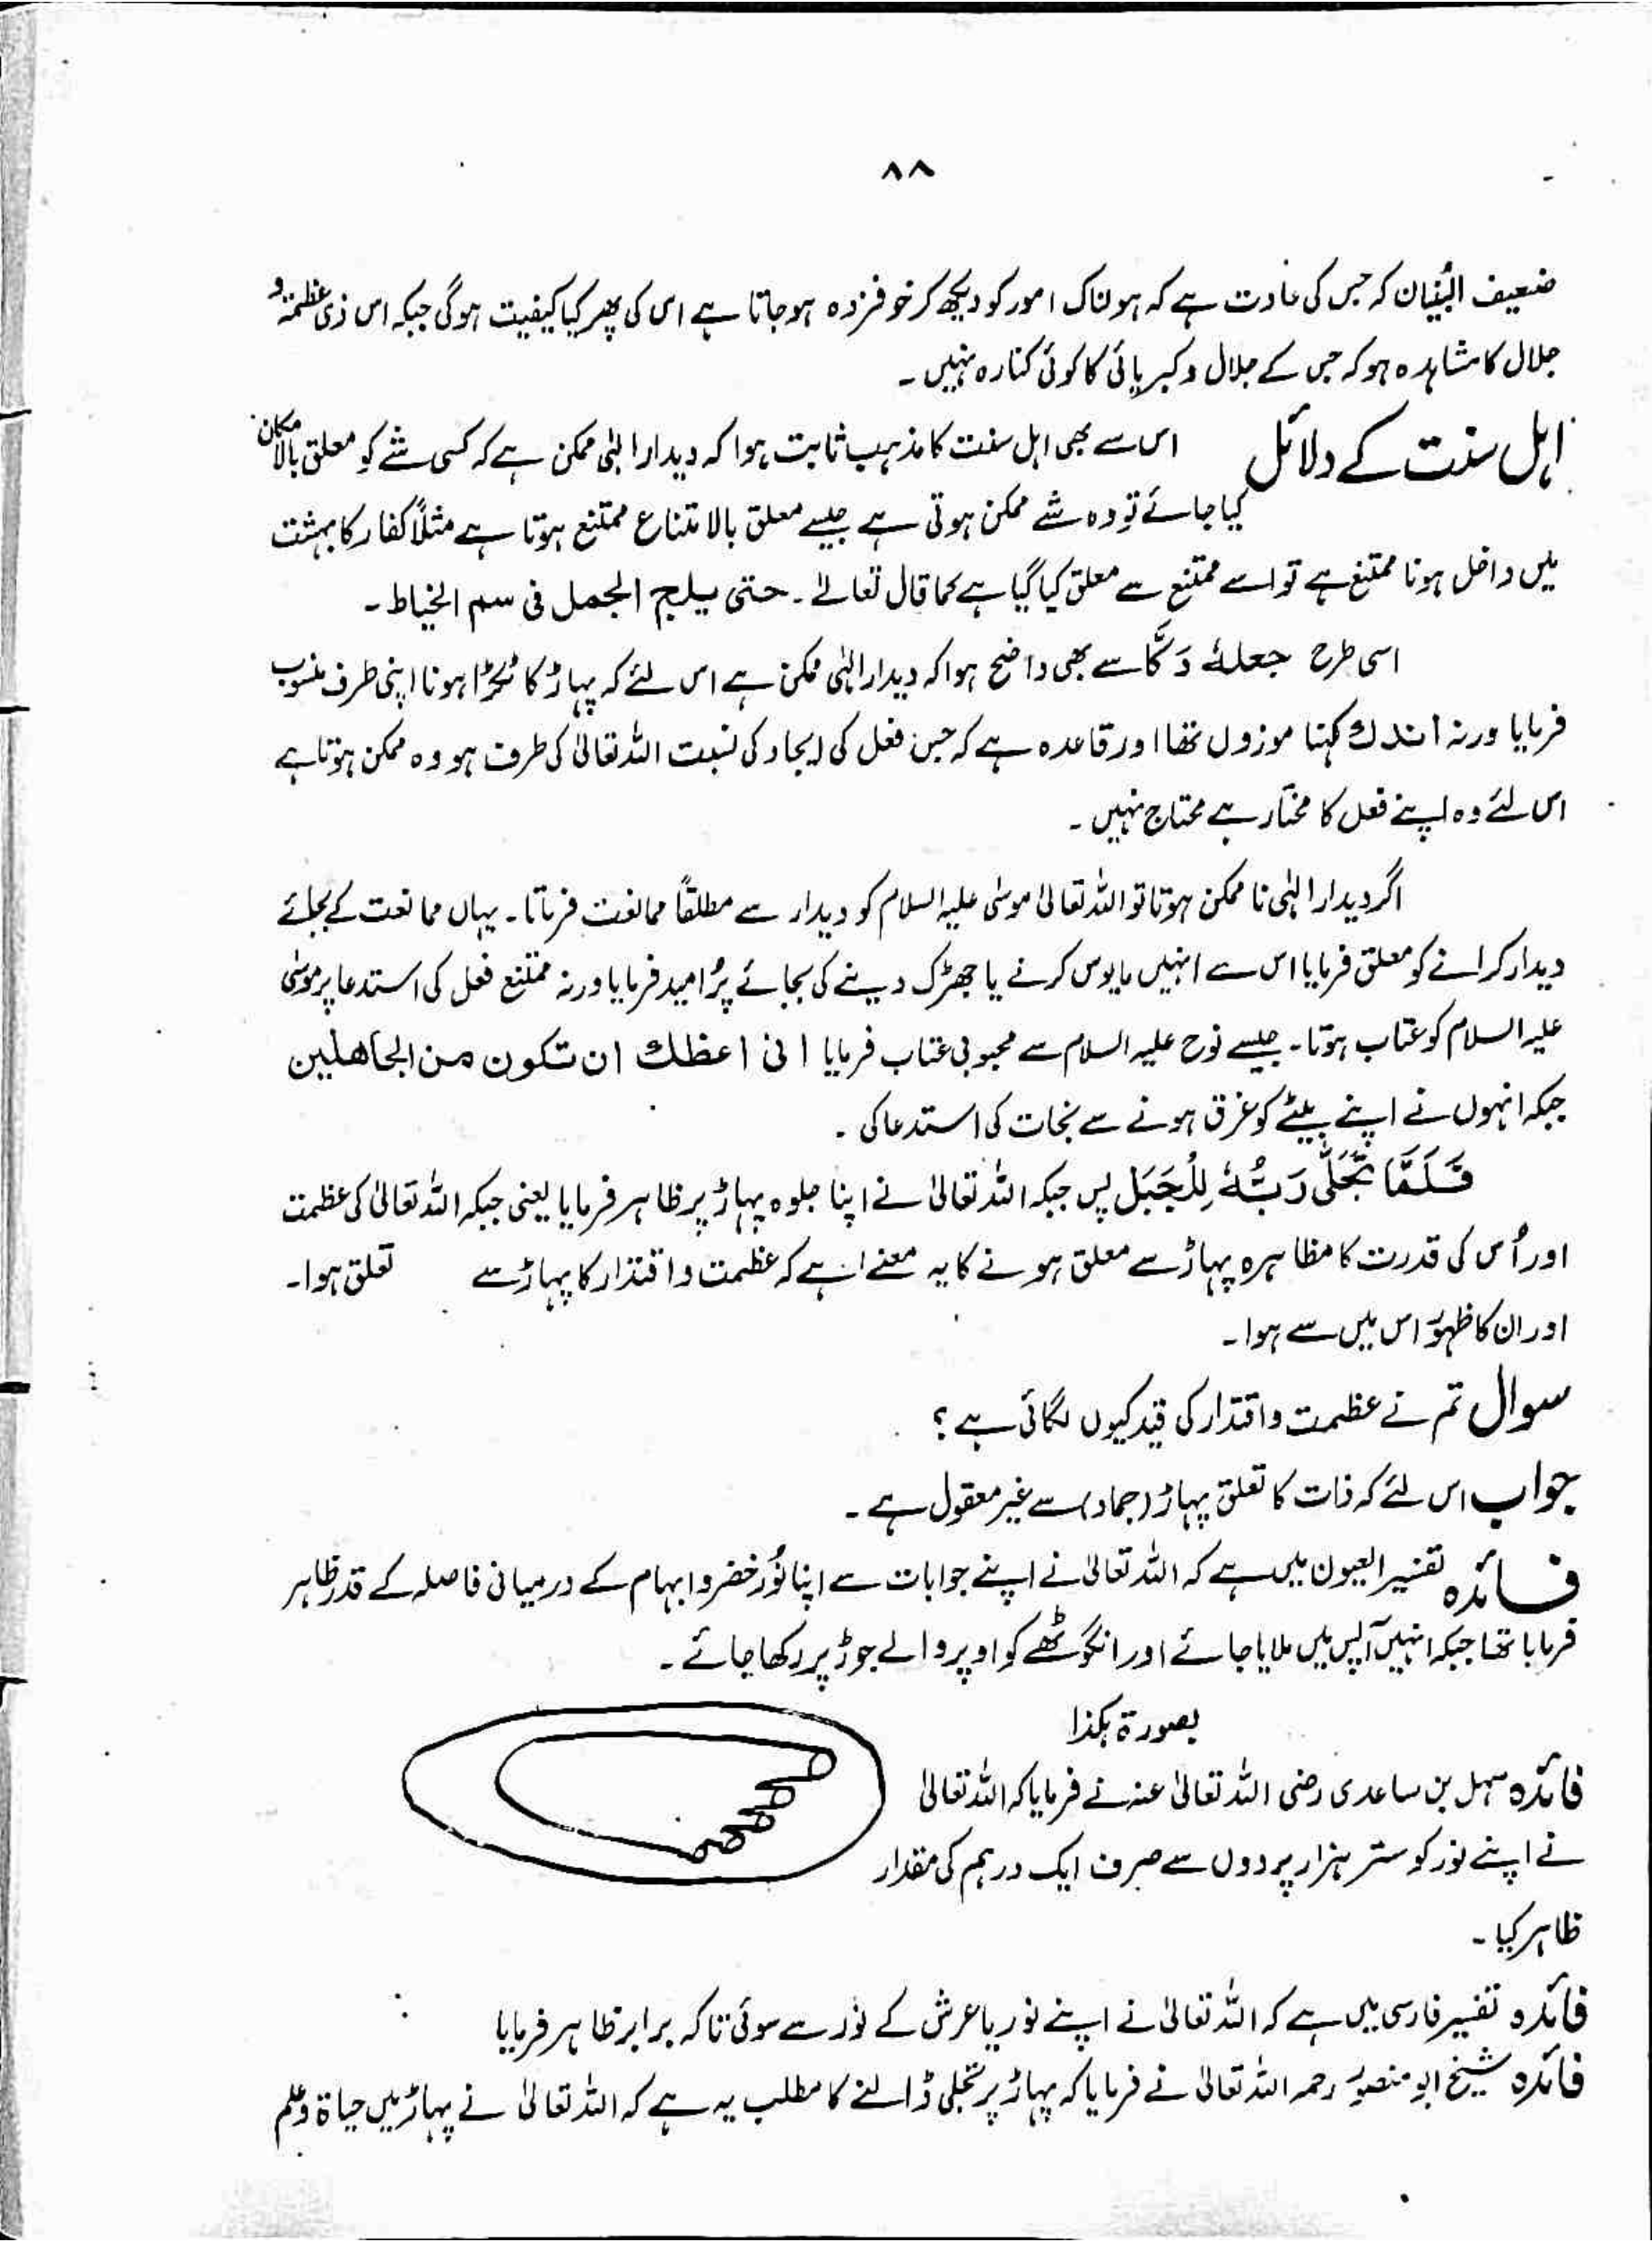 ۸۸
ضعیف البُنیان کہ جس کی عادت ہے کہ ہولناک امور کو دیکھ کر خوفزدہ ہوجاتا ہے اس کی پھر کیا کیفیت ہوگی جبکہ اس ذی عظمۃ و
جلال کا مشاہدہ ہو کہ جس کے جلال و کبریائی کا کوئی کنارہ نہیں ۔
اہل سنت کے دلائل اس سے بھی اہل سنت کا مذہب ثابت ہوا کہ دیدار الہٰی ممکن ہے کہ کسی شے کو معلق بالامکان
کیا جائے تو وہ شے ممکن ہوتی ہے جیسے معلق بالامتناع ممتنع ہوتا ہے مثلاً کفار کا بہشت
میں داخل ہونا ممتنع ہے تو اسے ممتنع سے معلق کیا گیا ہے کما قال تعالےٰ ۔ حتی یلج الجمل فی سم الخیاط ۔
اسی طرح جعلہٗ دَکًّا سے بھی واضح ہوا کہ دیدار الہٰی ممکن ہے اس لئے کہ پہاڑ کا ٹکڑا ہونا اپنی طرف منسوب
فرمایا ورنہ اندک کہنا موزوں تھا اور قاعدہ ہے کہ جس فعل کی ایجاد کی نسبت اللہ تعالیٰ کی طرف ہو وہ ممکن ہوتا ہے
اس لئے وہ اپنے فعل کا مختار ہے محتاج نہیں ۔
اگر دیدار الہٰی نا ممکن ہوتا تو اللہ تعالیٰ موسیٰ علیہ السلام کو دیدار سے مطلقاً ممانعت فرماتا ۔ یہاں ممانعت کے بجائے
دیدار کرانے کو معلق فرمایا اس سے انہیں مایوس کرنے یا جھڑک دینے کی بجائے پُر امید فرمایا ورنہ ممتنع فعل کی استدعا پر موسیٰ
علیہ السلام کو عتاب ہوتا ۔ جیسے نوح علیہ السلام سے محبوبی عتاب فرمایا انی اعظک ان تکون من الجاھلین
جبکہ انہوں نے اپنے بیٹے کو غرق ہونے سے نجات کی استدعا کی ۔
فَلَمَّا تَجَلّٰی رَبُّہٗ لِلْجَبَل پس جبکہ اللہ تعالیٰ نے اپنا جلوہ پہاڑ پر ظاہر فرمایا یعنی جبکہ اللہ تعالیٰ کی عظمت
اور اُس کی قدرت کا مظاہرہ پہاڑ سے معلق ہونے کا یہ معنے ہے کہ عظمت و اقتدار کا پہاڑ سے تعلق ہوا ۔
اور ان کا ظہور اس میں سے ہوا ۔
سوال تم نے عظمت و اقتدار کی قید کیوں لگائی ہے ؟
جواب اس لئے کہ ذات کا تعلق پہاڑ (جماد) سے غیر معقول ہے ۔
فائدہ تفسیر العیون میں ہے کہ اللہ تعالیٰ نے اپنے جوابات سے اپنا نُور خضر و ابہام کے درمیانی فاصلہ کے قدر ظاہر
فرمایا تھا جبکہ انہیں آپس میں ملایا جائے اور انگوٹھے کو اوپر والے جوڑ پر رکھا جائے ۔
بصورۃ ہکذا
فائدہ سہل بن ساعدی رضی اللہ تعالیٰ عنہ نے فرمایا کہ اللہ تعالیٰ
نے اپنے نور کو ستر ہزار پردوں سے صرف ایک درہم کی مقدار
ظاہر کیا ۔
فائدہ تفسیر فارسی میں ہے کہ اللہ تعالیٰ نے اپنے نور یا عرش کے نور سے سوئی تاکہ برابر ظاہر فرمایا
فائدہ شیخ ابو منصور رحمہ اللہ تعالیٰ نے فرمایا کہ پہاڑ پر تجلی ڈالنے کا مطلب یہ ہے کہ اللہ تعالیٰ نے پہاڑ میں حیاۃ و علم